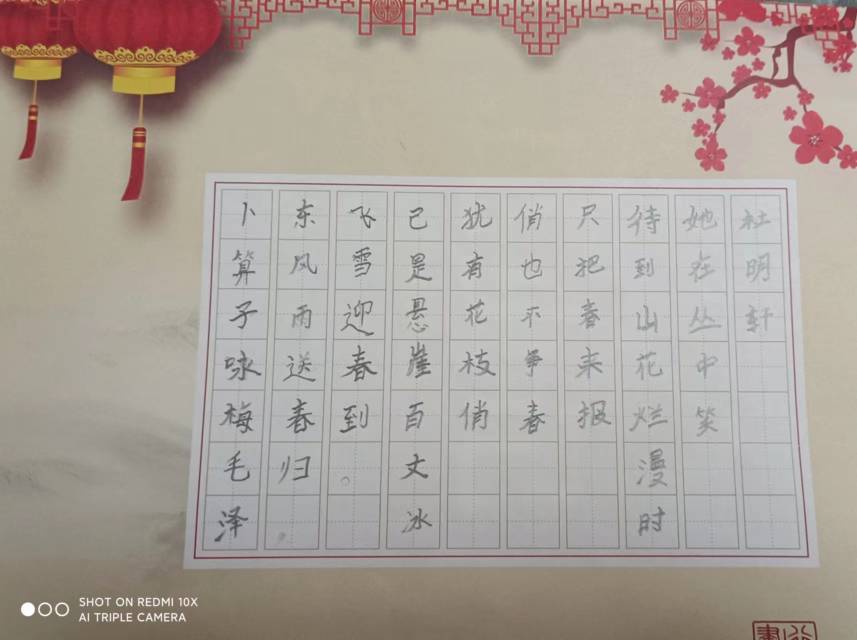 卜算子咏梅毛泽
东风雨送春归。
飞雪迎春到。
已是悬崖百丈冰
犹有花枝俏
俏也不争春
只把春来报
待到山花烂漫时
她在丛中笑
杜明轩
SHOT ON REDMI 10X
AI TRIPLE CAMERA